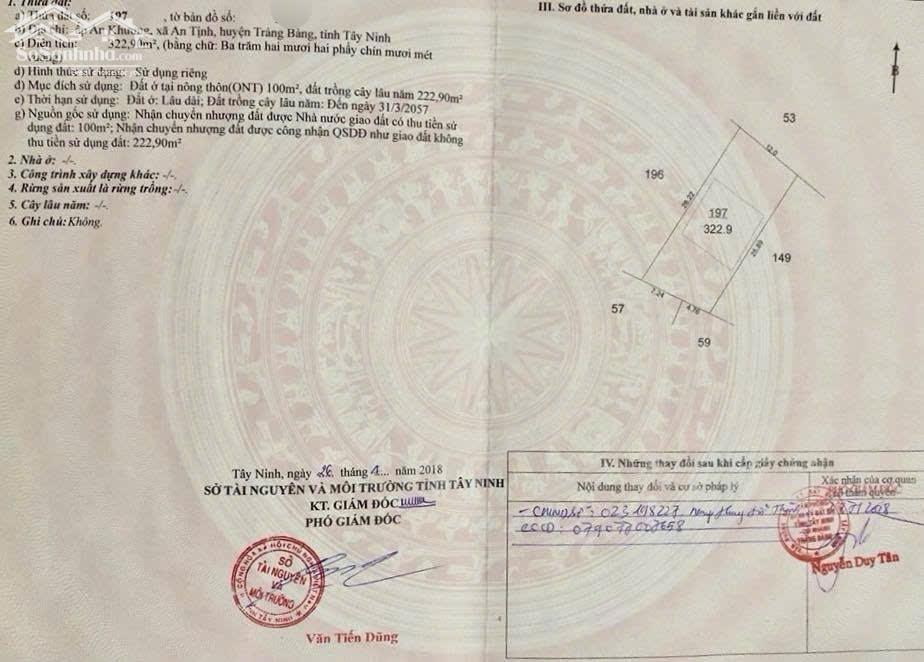 1. Thửa đất:
a) Thửa đất số: 197 , tờ bản đồ số:
b) Địa chỉ: ấp An Khương, xã An Tịnh, huyện Trảng Bàng, tỉnh Tây Ninh
c) Diện tích: 322,90m², (bằng chữ: Ba trăm hai mươi hai phẩy chín mươi mét
vuông)
d) Hình thức sử dụng: Sử dụng riêng
đ) Mục đích sử dụng: Đất ở tại nông thôn(ONT) 100m², đất trồng cây lâu năm 222,90m²
e) Thời hạn sử dụng: Đất ở: Lâu dài; Đất trồng cây lâu năm: Đến ngày 31/3/2057
g) Nguồn gốc sử dụng: Nhận chuyển nhượng đất được Nhà nước giao đất có thu tiền sử
dụng đất: 100m²; Nhận chuyển nhượng đất được công nhận QSDĐ như giao đất không
thu tiền sử dụng đất: 222,90m²
2. Nhà ở: -/-.
3. Công trình xây dựng khác: -/-.
4. Rừng sản xuất là rừng trồng:-/-.
5. Cây lâu năm: -/-.
6. Ghi chú: Không.
Sosanhnha.com
Tây Ninh, ngày 26 tháng 1 năm 2018
SỞ TÀI NGUYÊN VÀ MÔI TRƯỜNG TỈNH TÂY NINH
KT. GIÁM ĐỐC
PHÓ GIÁM ĐỐC
SỞ
TÀI NGUYÊN
VÀ
MÔI TRƯỜNG
Văn Tiến Dũng
III. Sơ đồ thửa đất, nhà ở và tài sản khác gắn liền với đất
B
53
12.0
196
28.22
197
322.9
25.89
149
57
7.24
4.76
59
IV. Những thay đổi sau khi cấp giấy chứng nhận
Nội dung thay đổi và cơ sở pháp lý
Xác nhận của cơ quan
có thẩm quyền
CCCD:
Nguyễn Duy Tân